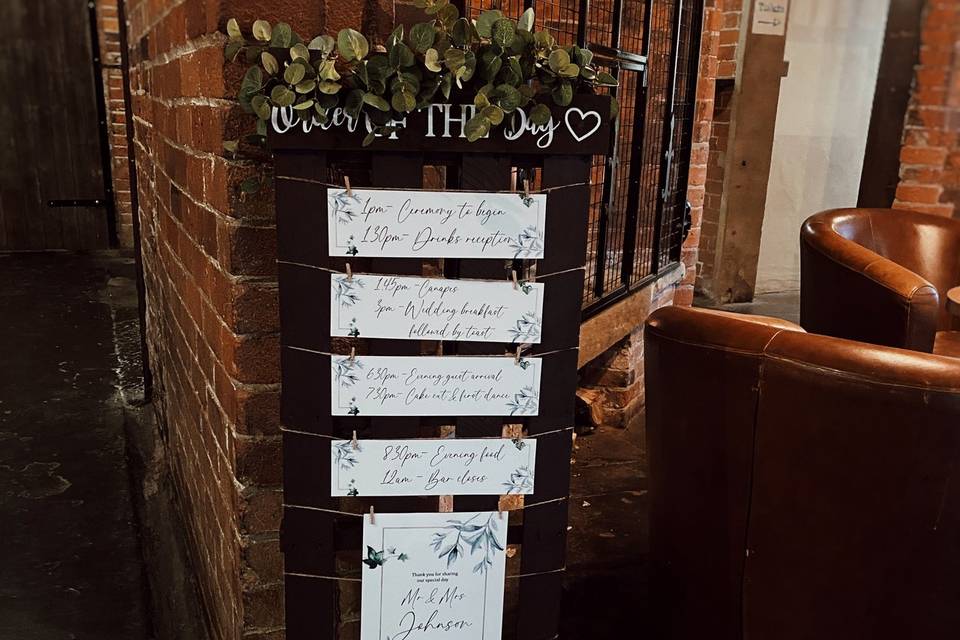 Toilets
Order OF THE Day
1pm- Ceremony to begin
1.30pm- Drinks reception
1.45pm -Canapes
3pm -Wedding breakfast
followed by toast
6.30pm -Evening guest arrival
7.30pm- Cake cut & first dance
8.30pm- Evening food
12am - Bar closes
Thank you for sharing
our special day
Mr & Mrs
Johnson